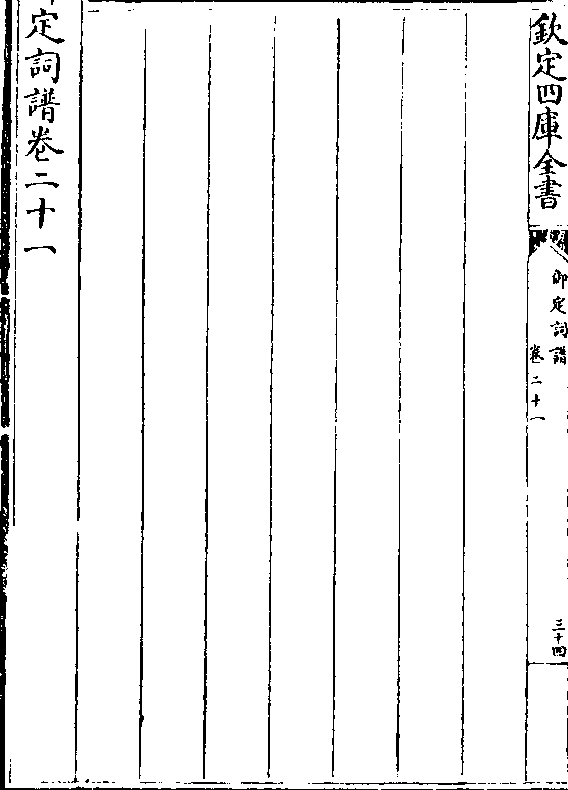 欽定四庫全書
御定詞譜
卷二十一
三十四
定詞譜卷二十一